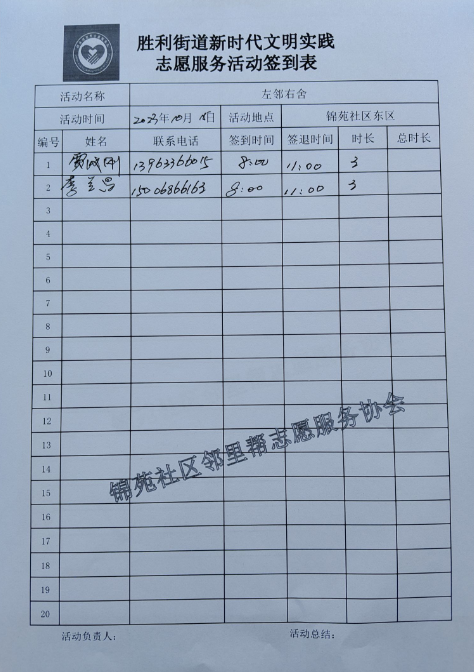 胜利街道新时代文明实践
志愿服务活动签到表
活动名称 左邻右舍
活动时间 2023年10月 日 活动地点 锦苑社区东区
编号 姓名 联系电话 签到时间 签退时间 时长 总时长
1 13963366015 8:00 11:00 3
2 李兰昌 15006866163 8:00 11:00 3
3
4
5
6
7
8
9
10
11
12
13
14
15
16
17
18
19
20
锦苑社区邻里帮志愿服务协会
活动负责人： 活动总结：